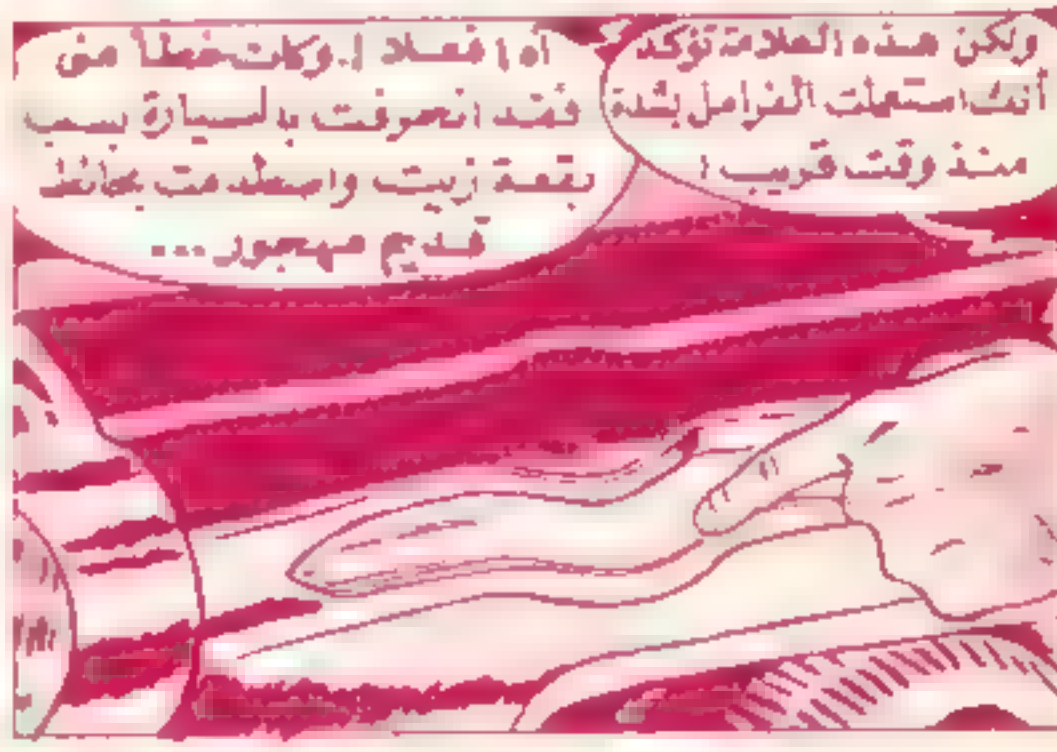 ولكن هذه العلامة تؤكد
أنك استعملت الفرامل بشدة
منذ وقت قريب !
آه ! فعلا !. وكان خطأ منى
فقد انحرفت بالسيارة بسبب
بقعة زيت واصطدمت بحائط
قديم مهجور ...